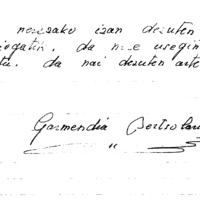 nerezako izan dezuten
da nere usegin
da nai dezuten arte
Garmendia Bertsolari
"